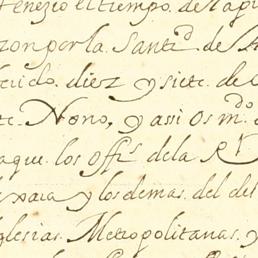 el tiempo. de la
zon por la. Sant.d de
diez y siete. de
Nono, y assi os m.do
que. los Off.s de la R.l
y los demas. del de
glesias. Metropolitanas. y